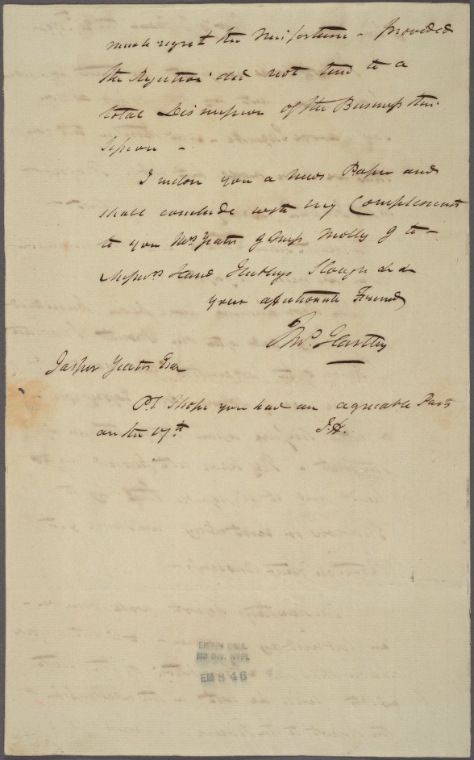 much regret the Misfortune - provided
the Rejection did not tend to a
total Dismission of the Business this
Session -
I inclose you a News Paper and
shall conclude with my Compliments
to you Mrs Yeates & Miss Molly & to -
Messrs Hand Hubleys Slough &ca
your affectionate Friend
Thos. Hartley
Jasper Yeates Esqr
PS I hope you had an agreeable Party
on the 17th
T.H.
EM 8 46